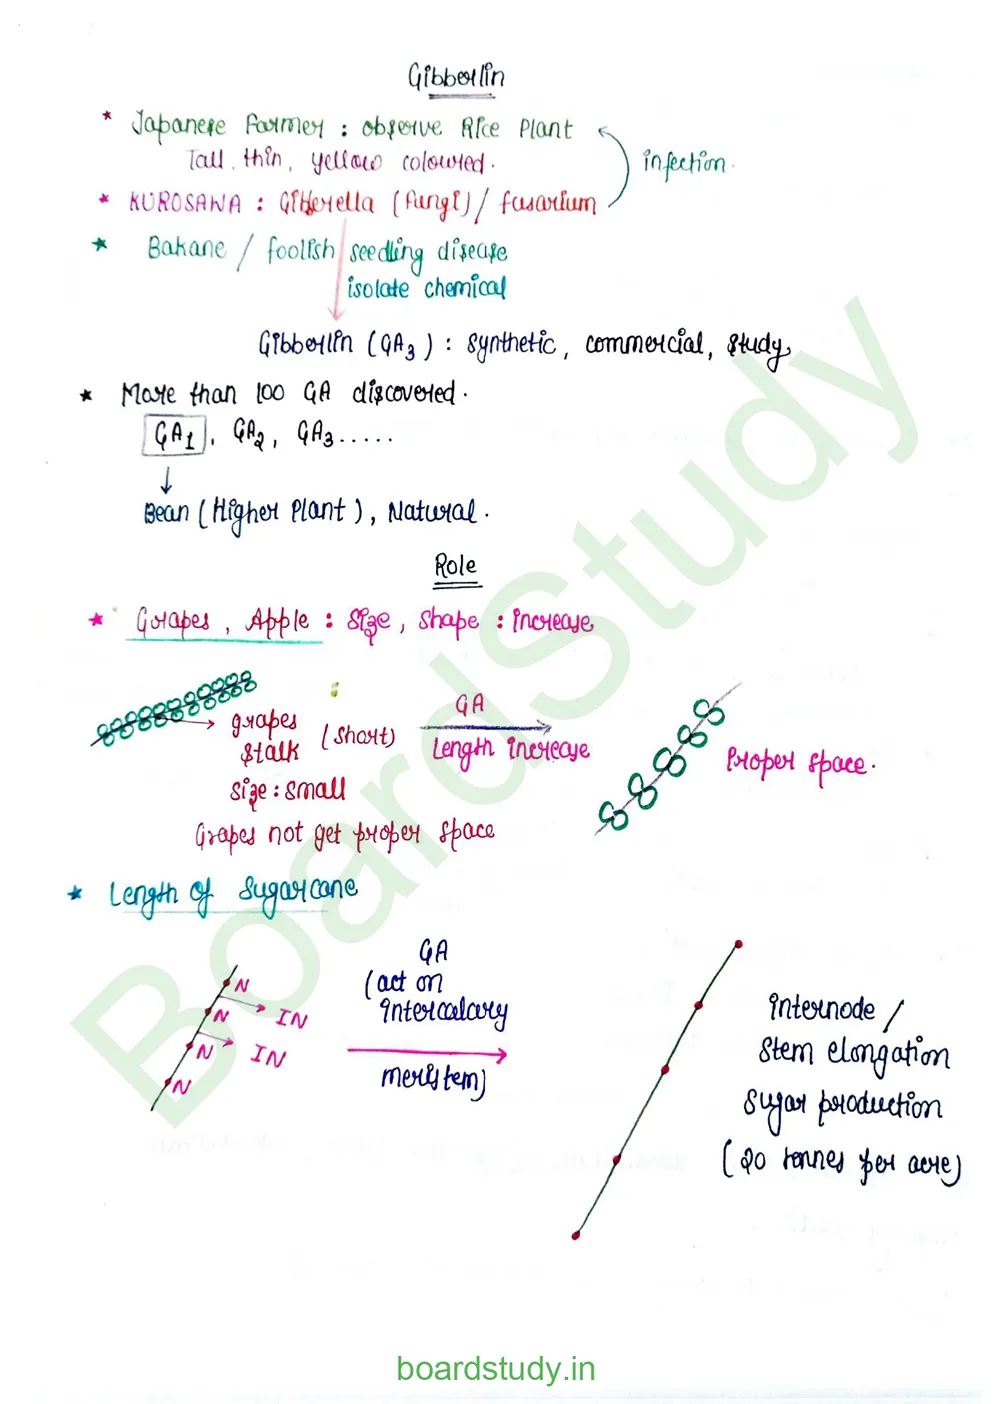 Gibberlin
* Japanese Farmer : observe Rice Plant
Tall, thin, yellow coloured.
infection.
* KUROSAWA : Gibberella (fungi) / fusarium
* Bakane / foolish seedling disease
isolate chemical
Gibberlin (GA3) : synthetic, commercial, study
* More than 100 GA discovered.
GA1, GA2, GA3.....
Bean (Higher Plant), Natural.
Role
* Grapes, Apple : size, shape : increase
grapes
stalk (short)
size : small
Grapes not get proper space
GA
Length increase
Proper space.
* Length of sugarcane
N
N
IN
N
IN
N
GA
(act on
intercalary
meristem)
internode /
stem elongation
sugar production
(20 tonnes per acre)
BoardStudy
boardstudy.in